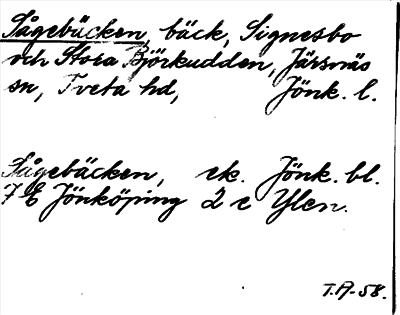 Sågebäcken, bäck, Signesbo
och Stora Björkudden, Järsnäs
sn, Tveta hd, Jönk. l.
Sågebäcken, ek. Jönk. bl.
7 E Jönköping 2 e Ylen.
T.A-58.